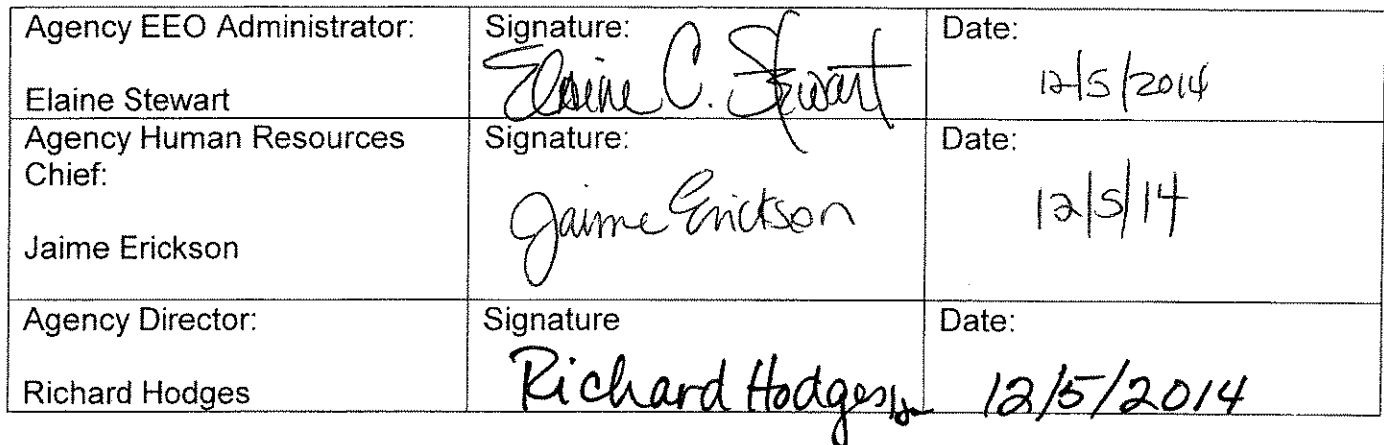 Agency EEO Administrator:
Elaine Stewart
Signature:
Elaine C. Stewart
Date:
12/5/2014
Agency Human Resources
Chief:
Jaime Erickson
Signature:
Jaime Erickson
Date:
12/5/14
Agency Director:
Richard Hodges
Signature
Richard Hodges
Date:
12/5/2014